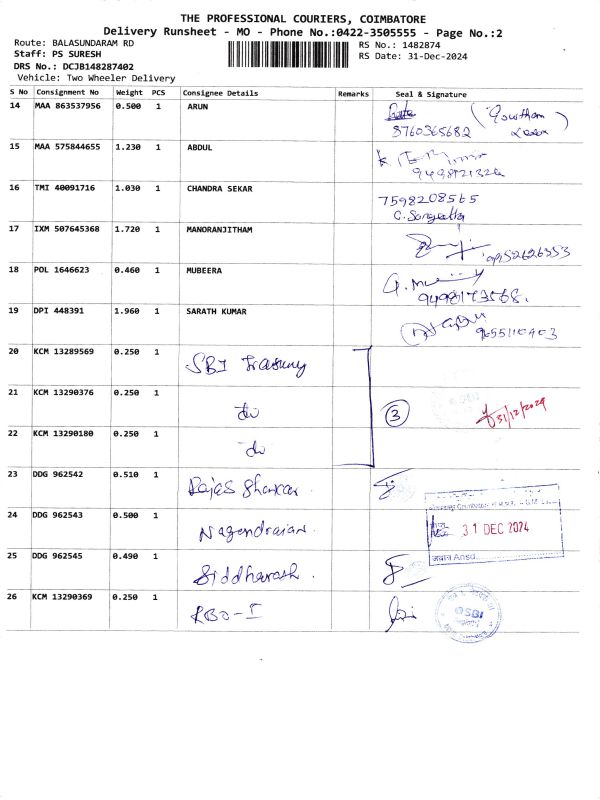 THE PROFESSIONAL COURIERS, COIMBATORE
Delivery Runsheet - MO - Phone No.:0422-3505555 - Page No.:2
Route: BALASUNDARAM RD
RS No.: 1482874
Staff: PS SURESH
RS Date: 31-Dec-2024
DRS No.: DCJB148287402
Vehicle: Two Wheeler Delivery
S No Consignment No Weight PCS Consignee Details Remarks Seal & Signature
14 MAA 863537956 0.500 1 ARUN
8760365682
15 MAA 575844655 1.230 1 ABDUL
16 TMI 40091716 1.030 1 CHANDRA SEKAR 7598208565
C. Sangeetha
17 IXM 507645368 1.720 1 MANORANJITHAM 9952626353
18 POL 1646623 0.460 1 MUBEERA
9498173568.
19 DPI 448391 1.960 1 SARATH KUMAR
20 KCM 13289569 0.250 1 SBI Treasury
21 KCM 13290376 0.250 1 do 3 31/12/2024
22 KCM 13290180 0.250 1 do
23 DDG 962542 0.510 1 Rajas Shankar.
24 DDG 962543 0.500 1 Nagendraian 31 DEC 2024
25 DDG 962545 0.490 1 Siddharath.
26 KCM 13290369 0.250 1 RBO-I SBI